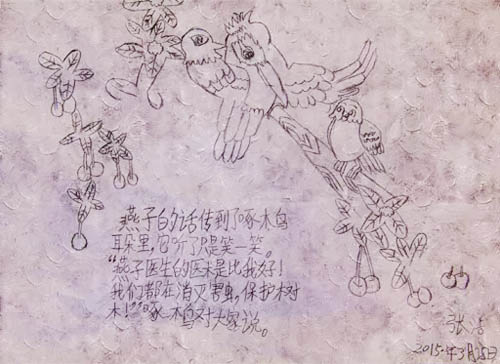 燕子的话传到了啄木鸟
耳朵里,它听了只是笑一笑。
“燕子医生的医术是比我好!
我们都在消灭害虫,保护树
木!”啄木鸟对大家说。
张洁
2015.年3月25日